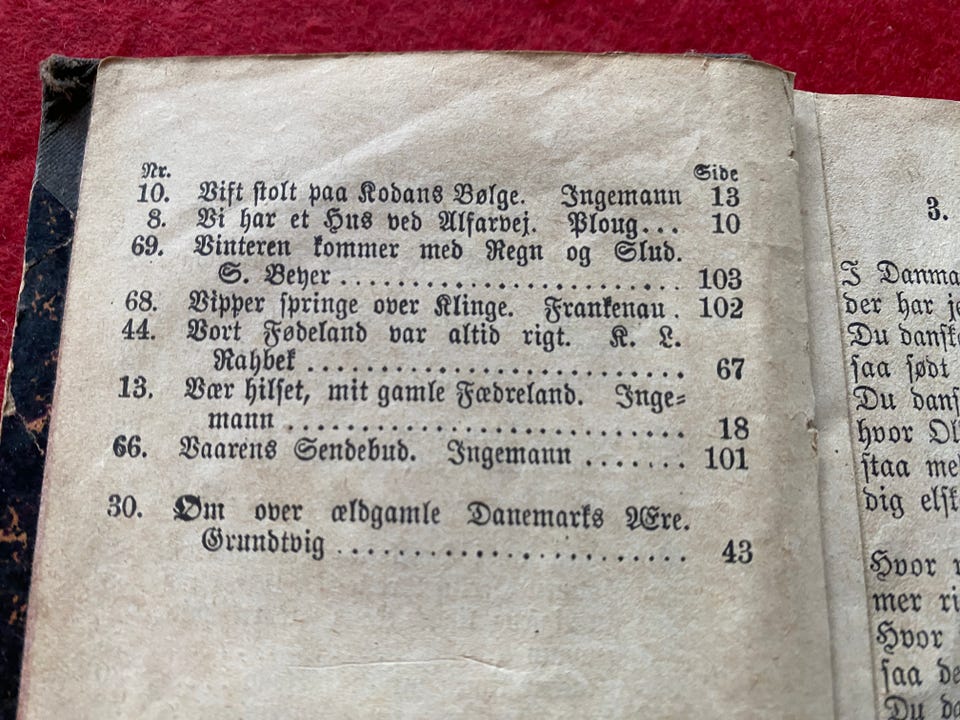 Nr. Side
10. Vift stolt paa Kodans Bølge. Ingemann 13
8. Vi har et Hus ved Alfarvej. Ploug... 10
69. Vinteren kommer med Regn og Slud.
S. Beyer ........................ 103
68. Vipper springe over Klinge. Frankenau. 102
44. Vort Fødeland var altid rigt. K. L.
Rahbek ........................... 67
13. Vær hilset, mit gamle Fædreland. Inge-
mann ............................ 18
66. Vaarens Sendebud. Ingemann ....... 101
30. Om over ældgamle Danemarks Ære.
Grundtvig ........................ 43
3.
I Danma
der har je
Du danske
saa sødt
Du dans
hvor Ol
staa me
dig elsk
Hvor
mer ri
Hvor
saa de
Du da